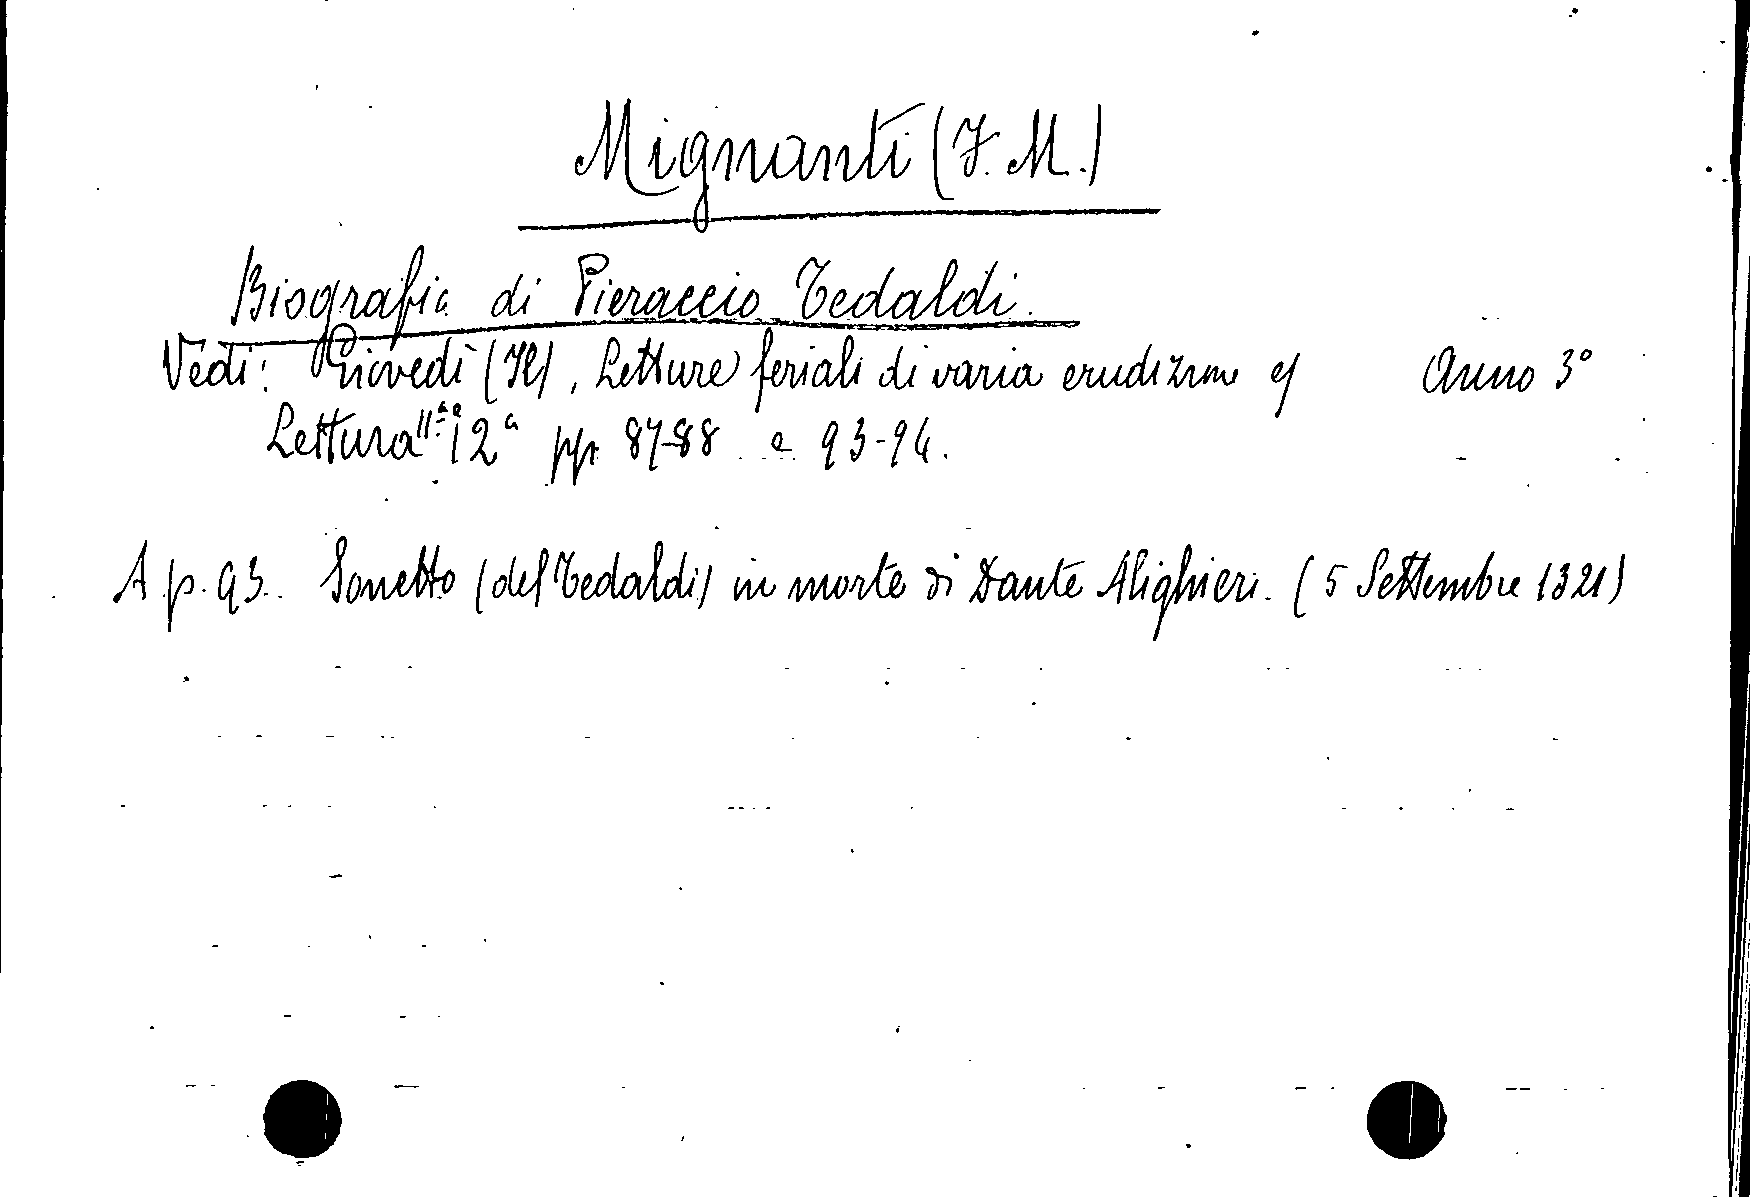 Mignanti (F. M.)
Biografia di Pieraccio Tedaldi.
Vedi: Giovedì (Il), Letture feriali di varia erudizione Anno 3º
Lettura 11ª e 12ª pp. 87-88 e 93-94.
A p. 93. Sonetto (del Tedaldi) in morte di Dante Alighieri. (5 Settembre 1321)